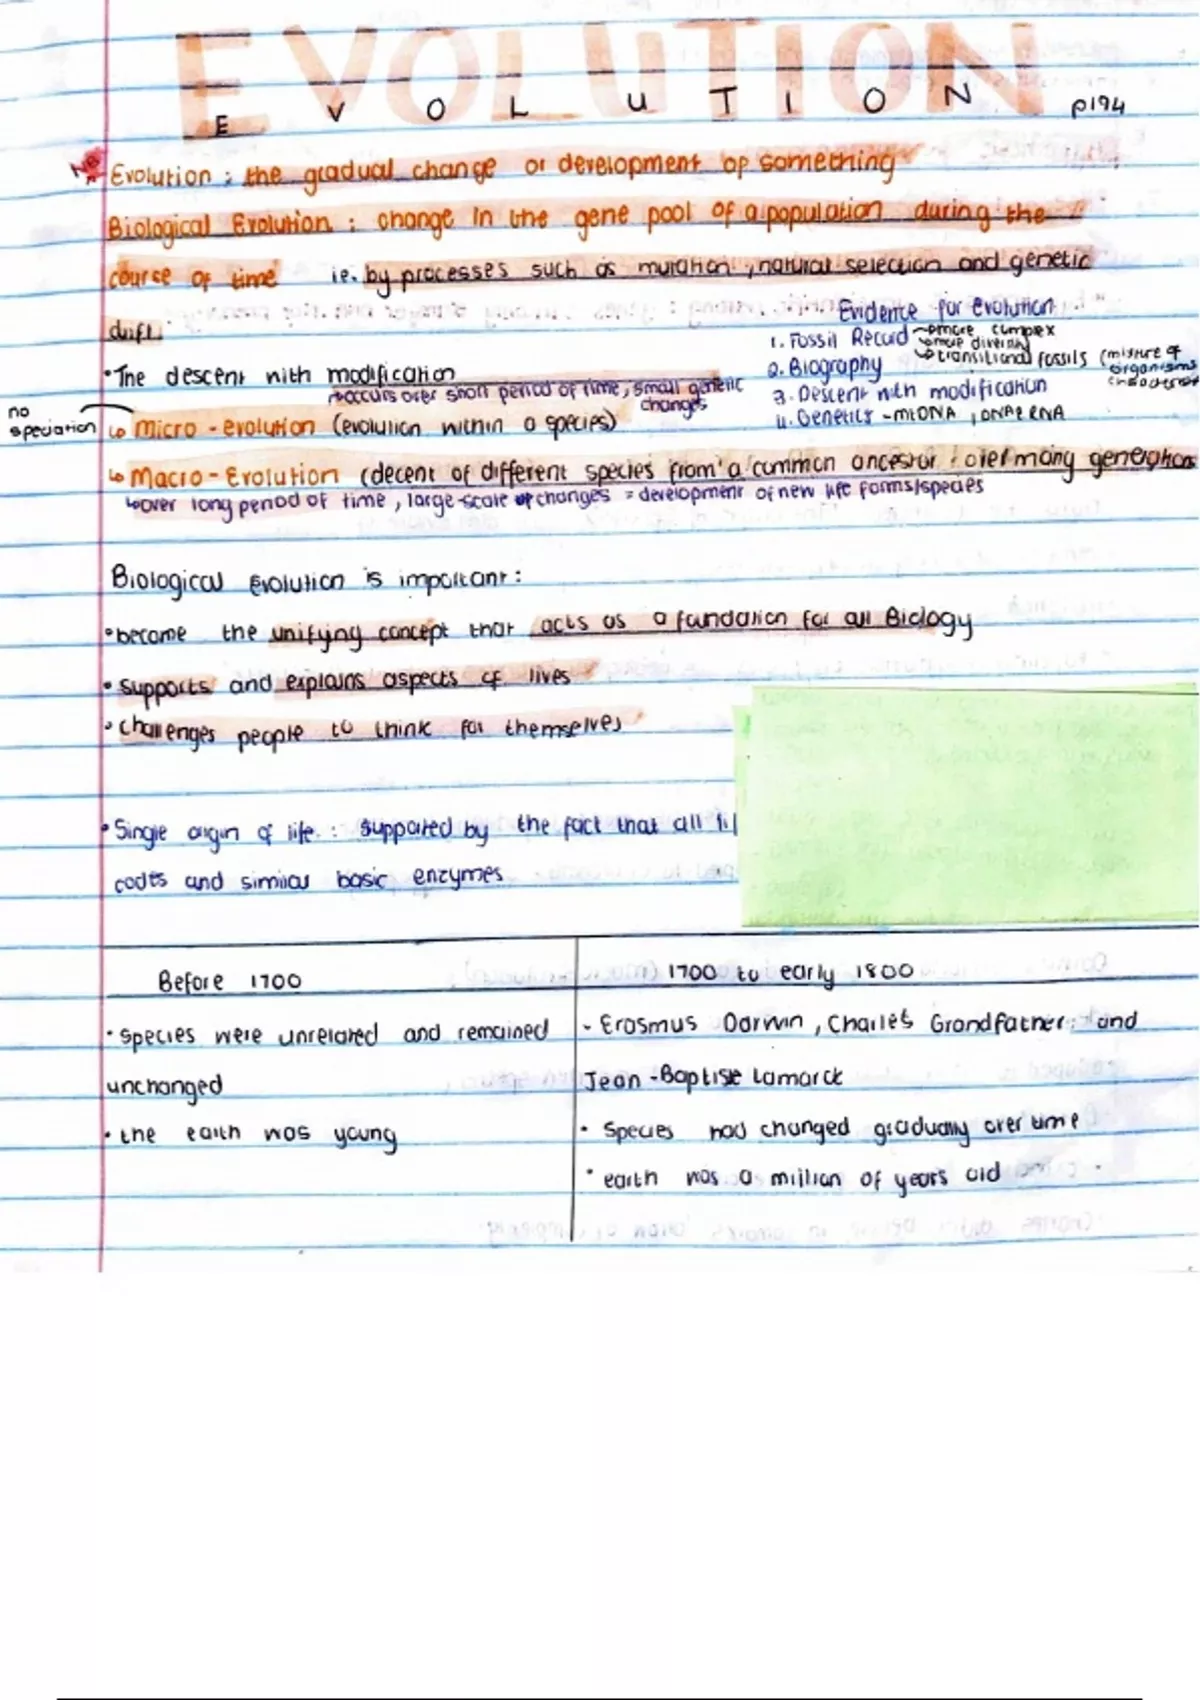 EVOLUTION
E V O L U T I O N p194
NB Evolution : the gradual change or development of something
Biological Evolution : change in the gene pool of a population during the
course of time ie. by processes such as mutation, natural selection and genetic
drift.
Evidence for evolution
1. Fossil Record more complex
more diversity
transitional fossils (mixture of organisms
2. Biography
3. Descent with modification
4. Genetics - mtDNA, DNA & RNA
• The descent with modification
occurs over short period of time, small genetic
changes
no
speciation
Micro - evolution (evolution within a species)
Macro - Evolution (decent of different species from a common ancestor over many generations
over long period of time, large-scale of changes = development of new life forms/species
Biological evolution is important :
• become the unifying concept that acts as a foundation for all Biology
• supports and explains aspects of lives
• challenges people to think for themselves
• Single origin of life : supported by the fact that all
codes and similar basic enzymes
Before 1700
• species were unrelated and remained
unchanged
• the earth was young
1700 to early 1800
- Erasmus Darwin, Charles Grandfather and
Jean - Baptise Lamarck
• Species had changed gradually over time
• earth was a million of years old